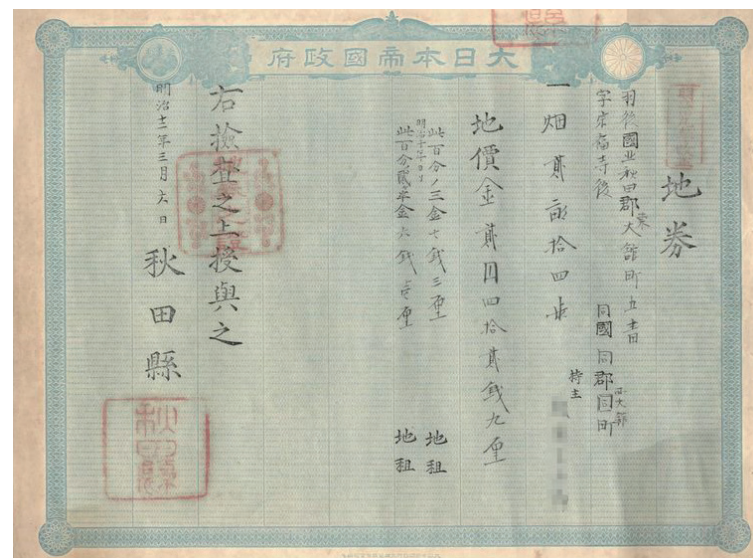 大日本帝國政府
地券
羽後國北秋田郡東大館町五十番
字宗福寺後
同國同郡同町
持主
一畑貳畝拾四步
地價金貳円四拾貳銭九厘
此百分ノ三金七銭三厘 地租
明治十年ヨリ
此百分ノ貳ヶ半金六銭壱厘 地租
右撿査之上授與之
明治十一年三月六日
秋田縣
秋田縣